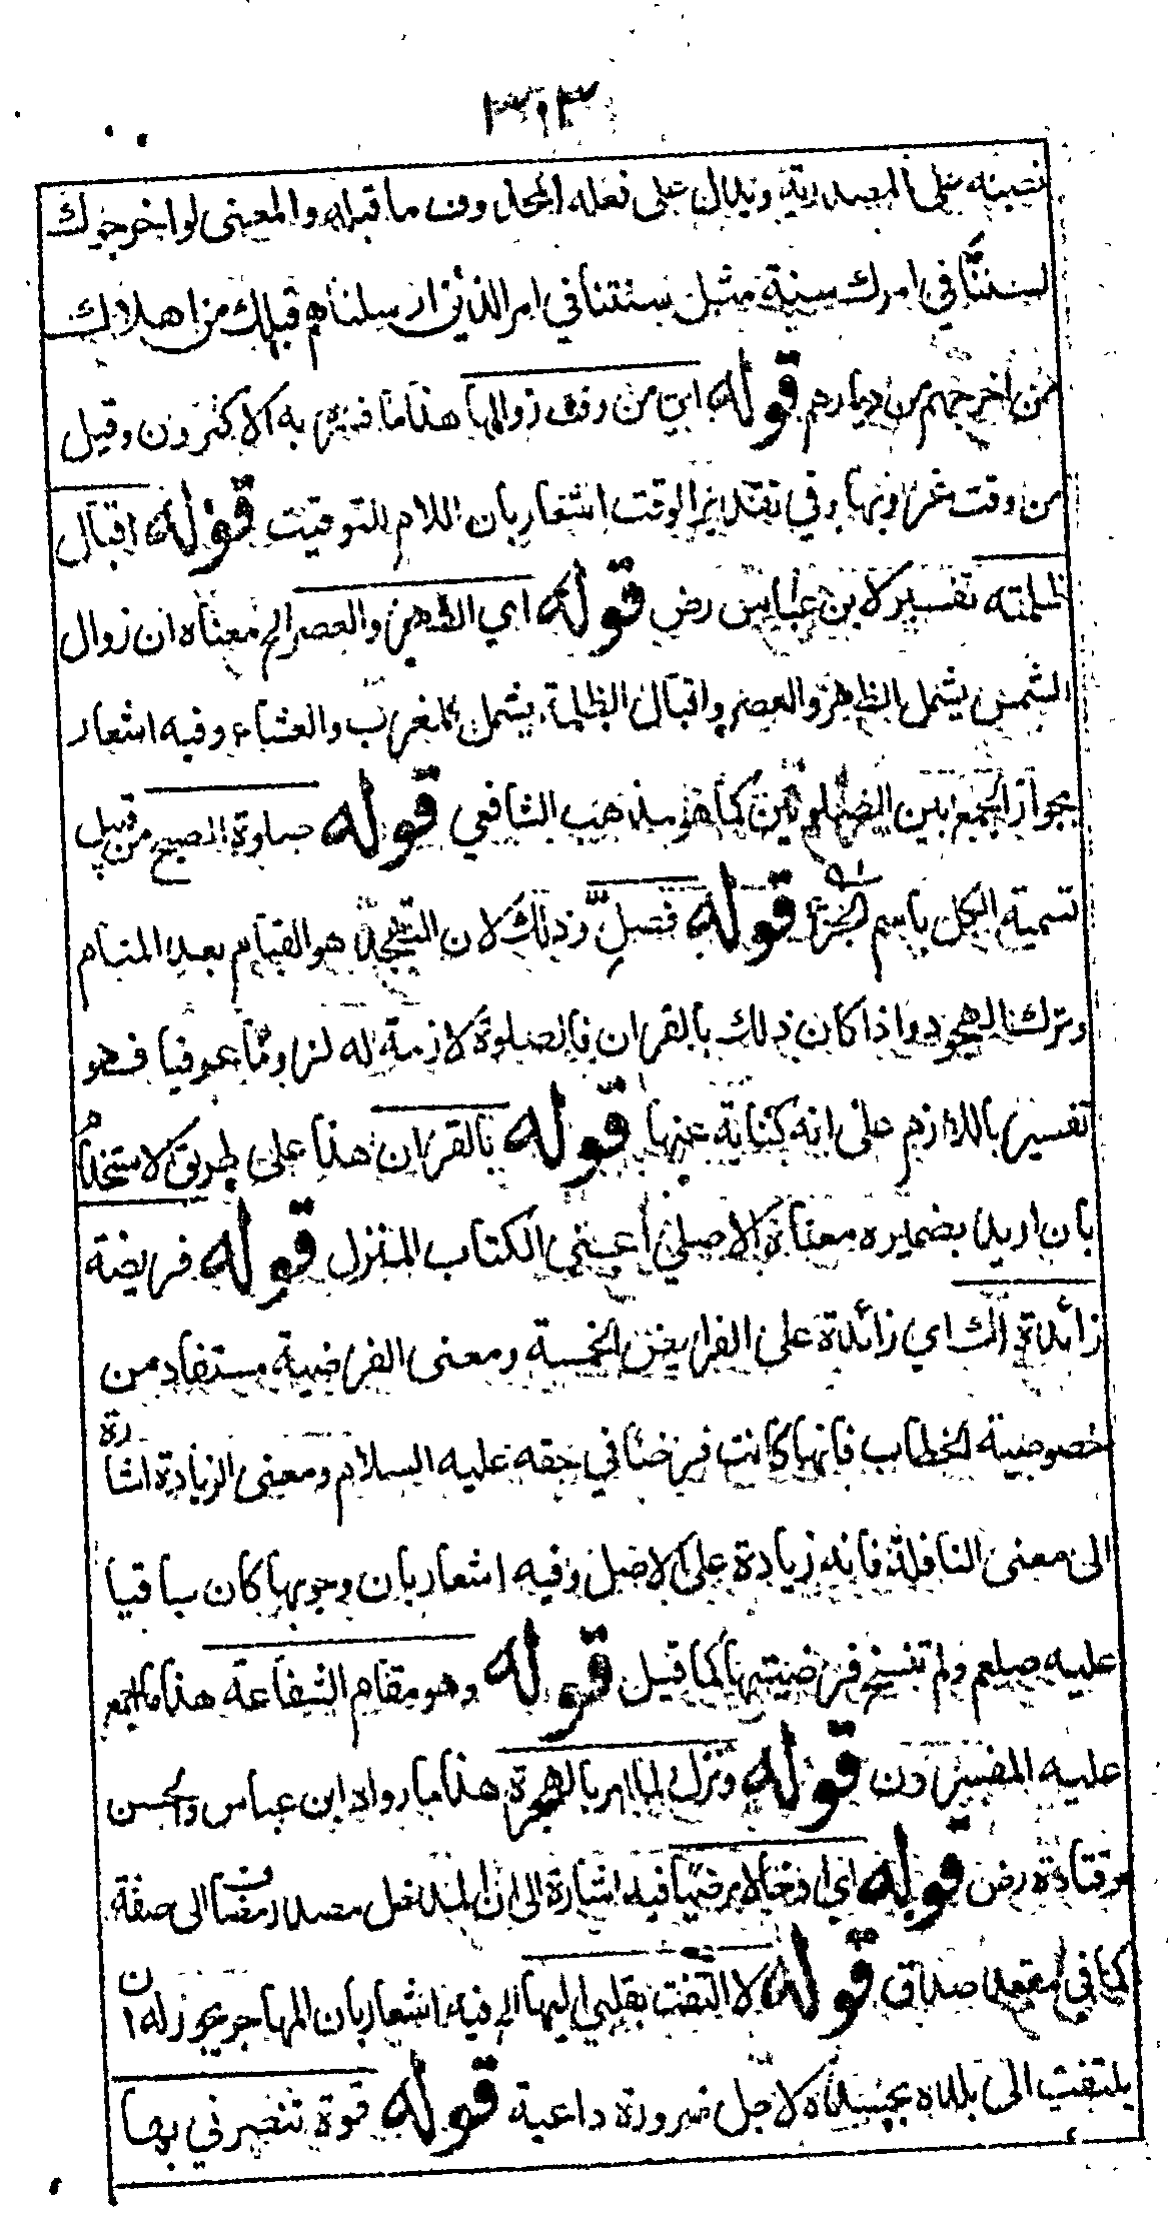 ٣٩٣
نصبته على المصدرية ويدل على فعله المحذوف ما قبله والمعنى لو اخرجوك
لسننّا في امرك سنة مثل سنتنا في امر الذين ارسلناهم قبلك من اهلاك
من اخرجهم من ديارهم قوله اي من وقت زوالها هذا ما فسره به الاكثرون وقيل
من وقت غروبها وفي تقدير الوقت اشعار بان اللام للتوقيت قوله اقبال
ظلمته تفسير لابن عباس رض قوله اي الظهر والعصر الخ معناه ان زوال
الشمس يشمل الظهر والعصر واقبال الظلمة يشمل المغرب والعشاء وفيه اشعار
بجواز الجمع بين الصلوتين كما هو مذهب الشافعي قوله صلوة الصبح من قبيل
تسمية الكل باسم الجزء قوله فصلّ وذلك لان التهجد هو القيام بعد المنام
وترك الهجود واذا كان ذلك بالقران فالصلوة لازمة له لزوما عرفيا فهو
تفسير باللازم على انه كناية عنها قوله بالقران هذا على طريق الاستخدام
بان اريد بضميره معناه الاصلي اعني الكتاب المنزل قوله فريضة
زائدة لك اي زائدة على الفرايض الخمسة ومعنى الفرضية مستفاد من
خصوصية الخطاب فانها كانت فرضا في حقه عليه السلام ومعنى الزيادة اشارة
الى معنى النافلة فانه زيادة على الاصل وفيه اشعار بان وجوبها كان باقيا
عليه صلعم ولم تنسخ فرضيتها كما قيل قوله وهو مقام الشفاعة هذا ما اجمع
عليه المفسرون قوله ونزل لما امر بالهجرة هذا ما رواه ابن عباس والحسن
وقتادة رض قوله اي ادخالا مرضيا فيه اشارة الى ان المدخل مصدر مضاف الى صفة
كما في مقعد صدق قوله لا التفت بقلبي اليها الخ فيه اشعار بان المهاجر يجوز له ان
يلتفت الى بلده بجسده لاجل ضرورة داعية قوله قوة تنصرني بها